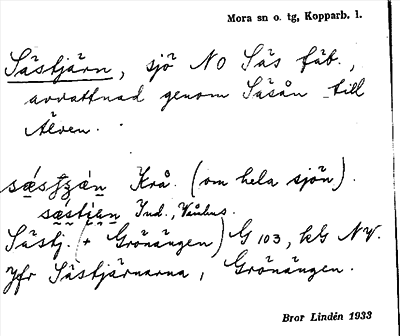 Mora sn o. tg, Kopparb. l.
Såstjärn, sjö NO Sås fäb.,
avvattnad genom Såsån till
Älven.
Krå. (om hela sjön).
Ind., Våmhus.
Såstj. (+ Grönängen) G 103, kG NV.
Jfr Såstjärnarna, Grönängen.
Bror Lindén 1933